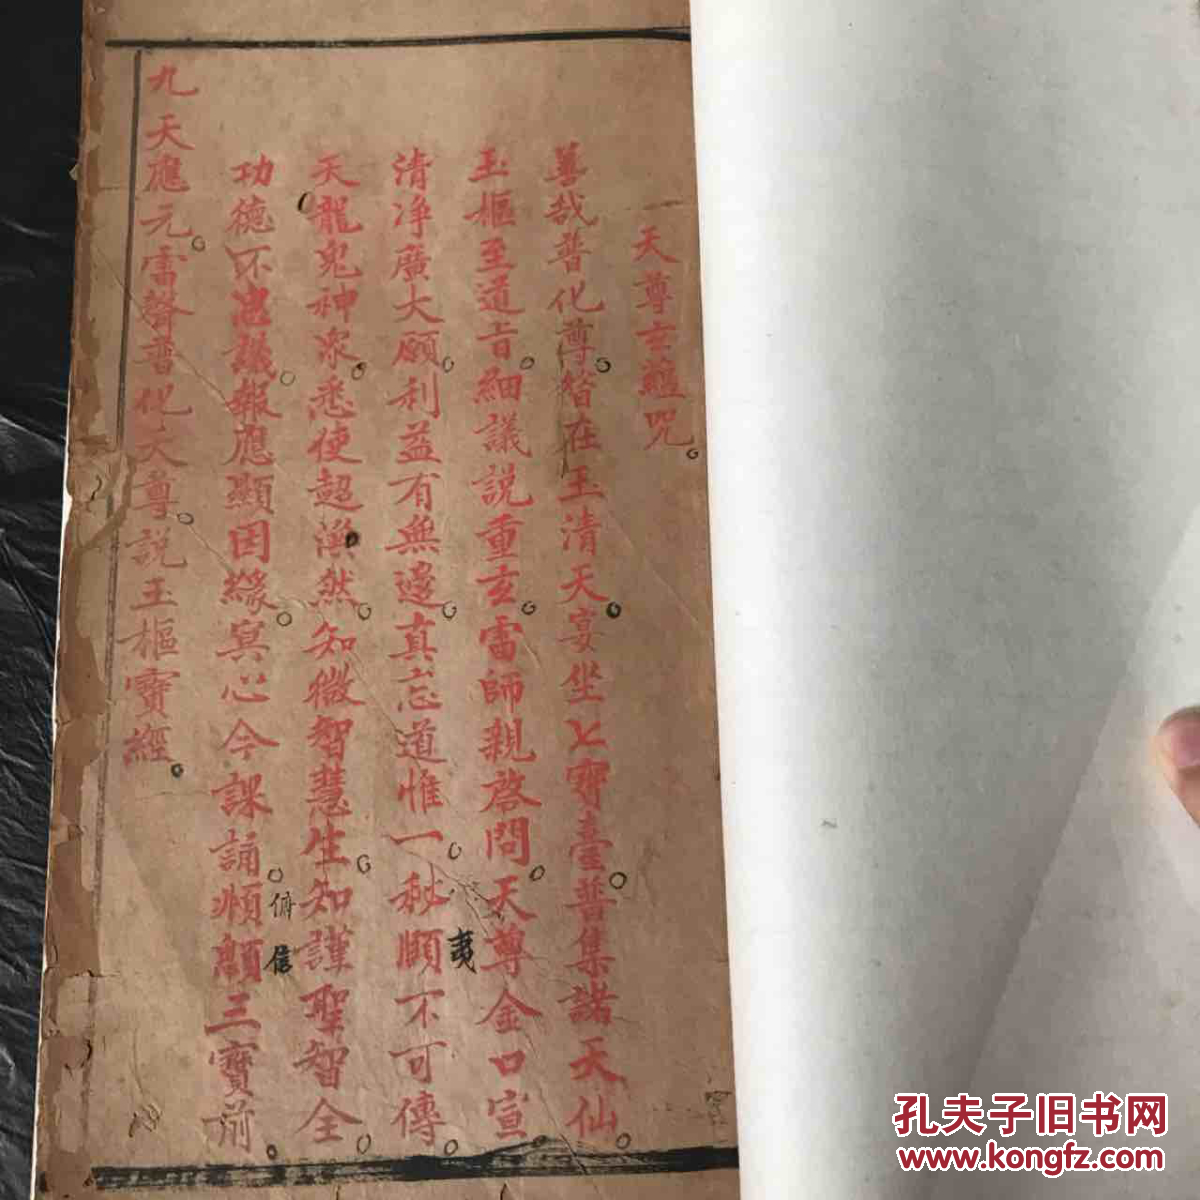 天尊玄蘊咒
善哉普化尊昔在玉清天宴坐七寳臺普集諸天仙
玉樞至道旨細議説重玄雷師親啓問天尊金口宣
清净廣大願利益有無邊真忘道惟一秘順不可傳
夷
天龍鬼神衆悉使超漁然知微智慧生知謹聖智全
功德不思議報應顯因緣冥心今課誦頫願三寳前
俯
信
九天應元雷聲普化天尊説玉樞寳經
孔夫子旧书网
www.kongfz.com